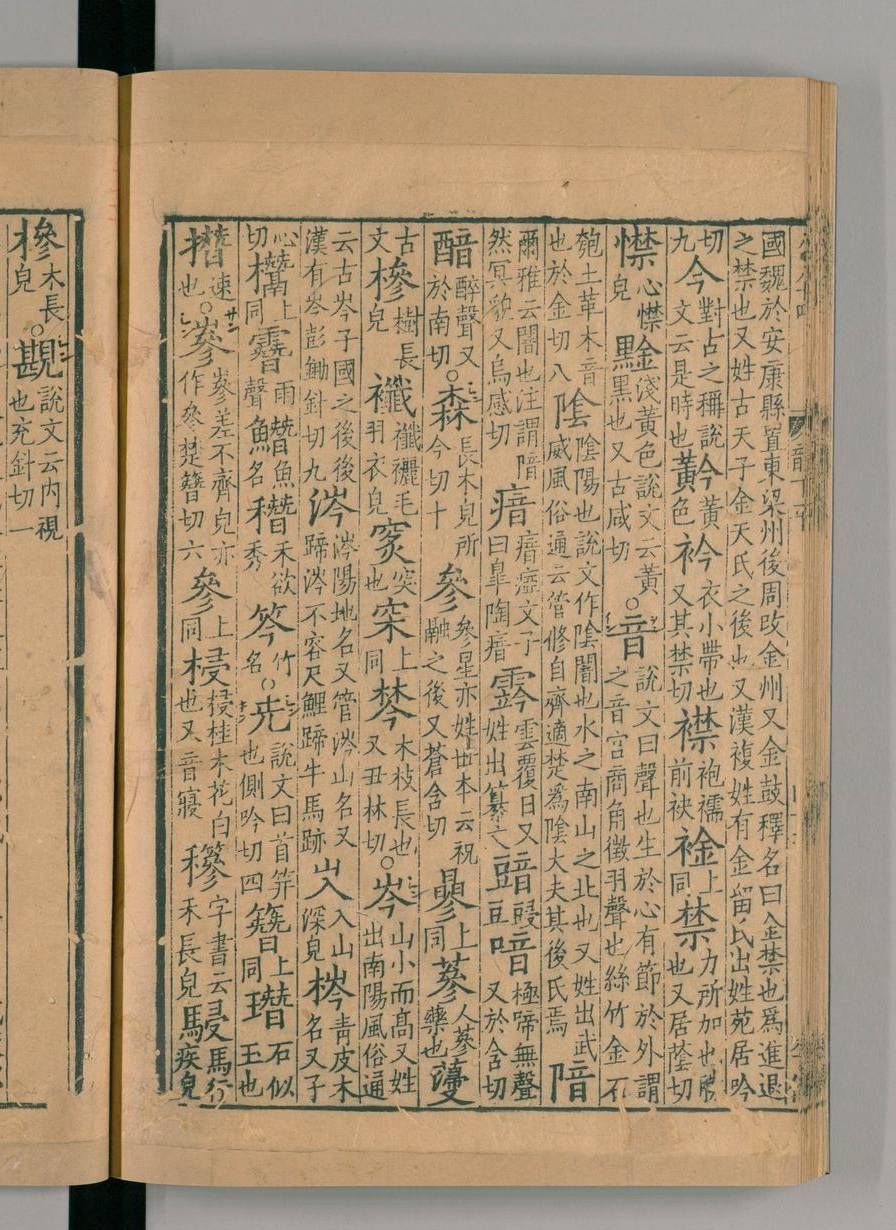 國魏於安康縣置東梁州後周改金州又金鼓釋名曰金禁也為進退之禁也又姓古天子金天氏之後也又漢複姓有金留氏出姓苑居吟
切九今對古之稱說文云是時也黅黃色衿衣小帶也又其禁切襟袍襦前袂䘳上同禁力所加也勝也又居蔭切
㦗心㦗皃䵖淺黃色說文云黃黑也又古咸切○音說文曰聲也生於心有節於外謂之音宮商角徵羽聲也絲竹金石
匏土革木音也於金切八陰陰陽也說文作陰闇也水之南山之北也又姓出武威風俗通云管修自齊適楚為陰大夫其後氏焉隌
爾雅云闇也注謂隌然冥貌又烏感切瘖瘖瘂文子曰皐陶瘖霒雲覆日又姓出纂文䜾豆喑極啼無聲又於含切
醉聲又於南切○森長木皃所今切十參參星亦姓世本云祝融之後又蒼含切曑上同蔘人蔘藥也薓
古文槮樹長皃襳襳襹毛羽衣皃突也穼上同棽木枝長也又丑林切○岑山小而高又姓出南陽風俗通
云古岑子國之後後漢有岑彭鋤針切九涔涔陽地名又管涔山名又蹄涔不容尺鯉蹄牛馬跡入山深皃梣青皮木名又子
心切上同雨聲魚名禾欲秀笒竹名○兂說文曰首笄也側吟切四簪上同石似玉也
撍速也○參差不齊皃亦作參楚簪切六參上同梫梫桂木花白也又音寢穇字書云禾長皃駸馬行疾皃
槮木長皃○說文云內視也充針切一